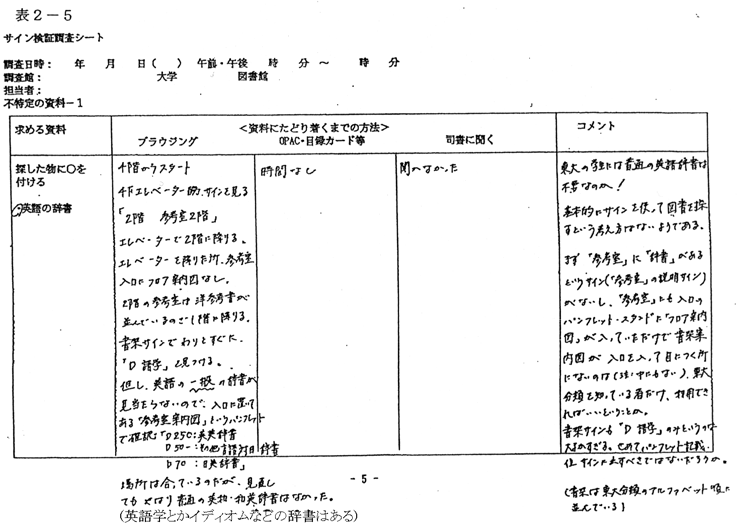 表２－５
サイン検証調査シート
調査日時： 年 月 日（ ） 午前・午後 時 分 ～ 時 分
調査館： 大学 図書館
担当者：
不特定の資料－1
求める資料
＜資料にたどり着くまでの方法＞
ブラウジング
OPAC・目録カード等
司書に聞く
コメント
探した物に○を
付ける
英語の辞書
4階からスタート
4Fエレベーター サインを見る
「2階 参考室2階」
エレベーターで2階に降りる。
エレベーターを降りた所、参考室
入口にフロア案内図なし。
2階の参考室は洋参考書が
並んでいるので1階に降りる。
書架サインでわりとすぐに、
「D 語学」を見つける。
但し、英語の一般の辞書が
見当たらないので、入口に置いて
ある「参考室案内図」というパンフレット
で確認「D250：英英辞書
D50－： 辞書
D70：日英辞書」
場所は合っているのだが、見直し
てもやはり普通の英和・和英辞書はなかった。
(英語学とかイディオムなどの辞書はある)
時間なし
聞かなかった
東大の学生には普通の英語辞書は
不要なのか！
基本的にサインを使って図書を探
すという考え方はないようである。
まず「参考室」に「辞書」がある
というサイン(「参考室」の説明サイン)
がないし、「参考室」にも入口の
パンフレット・スタンドに「フロア案内
図」が入っていただけで書架案
内図が入口を入って目につく所
にないのは 、東大
分類を知っている者だけ、利用でき
ればいいということか。
書架サインも「D 語学」のみというのは
大まかすぎる。せめてパンフレット記載
位サインに出すべきではないだろうか。
(書架は東大分類のアルファベット順に
並んでいる)
- 5 -